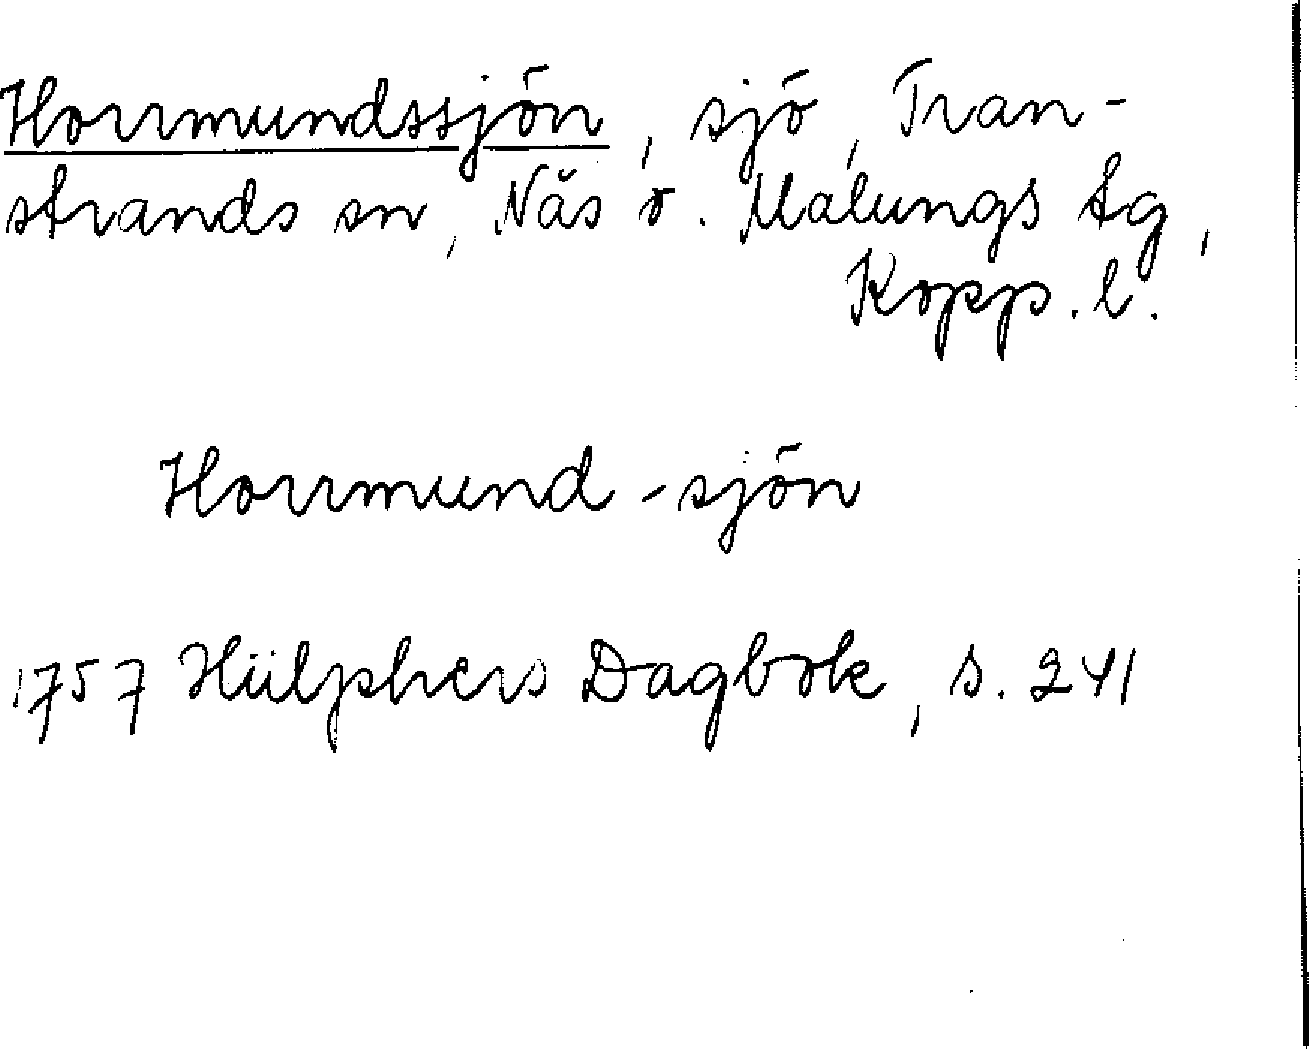 Horrmundssjön, sjö, Tran-
strands sn, Näs o. Malungs tg,
Kopp. l.
Horrmund-sjön
1757 Hülphers Dagbok, s. 241